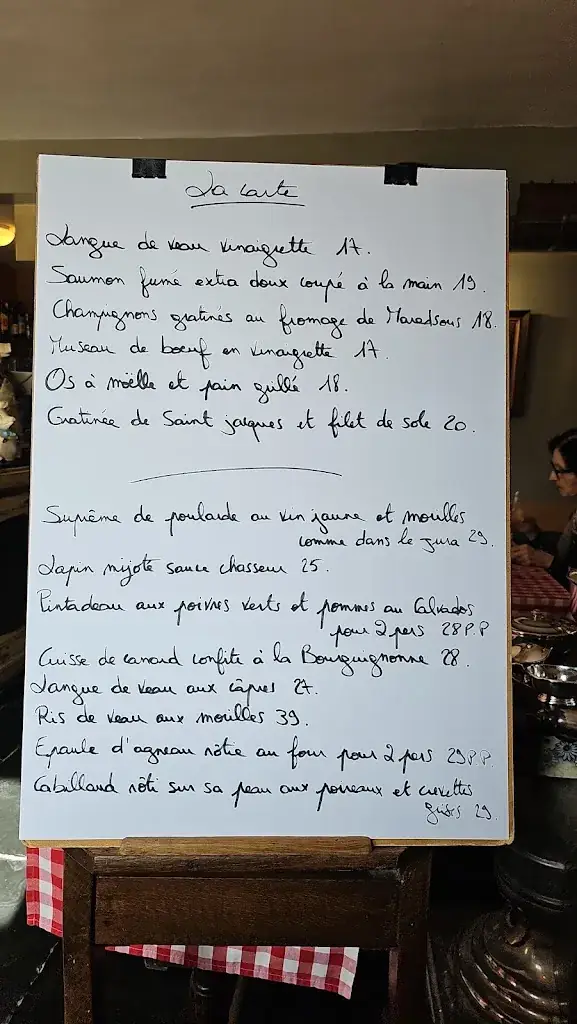 La carte
Langue de veau vinaigrette 17.
Saumon fumé extra doux coupé à la main 19.
Champignons gratinés au fromage de Maredsous 18.
Museau de boeuf en vinaigrette 17.
Os à moëlle et pain grillé 18.
Gratinée de Saint jacques et filet de sole 20.
Suprême de poularde au vin jaune et morilles
comme dans le jura 29.
Lapin mijoté sauce chasseur 25.
Pintadeau aux poivres verts et pommes au Calvados
pour 2 pers 28 P.P
Cuisse de canard confite à la Bourguignonne 28.
Langue de veau aux câpres 27.
Ris de veau aux morilles 39.
Epaule d'agneau rôtie au four pour 2 pers 29 P.P.
Cabillaud rôti sur sa peau aux poireaux et crevettes
grises 29.